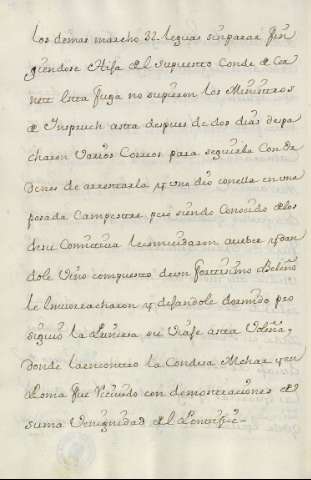 los demas marcho 32. leguas sin parar fin
giendose Hija del supuesto Conde de Cor
nett esta fuga no supieron los Ministros
de Inspruch asta despues de dos dias despa
charon varios Correos para seguirla con or
denes de arrestarla y uno dió con ella en una
posada Campestre, pero siendo Conosido de los
de su Comitiva le combidaron a veber y dan
dole vino compuesto de un fortisimo Beleño
le envorracharon y dejandole dormido pro
siguió la Princesa su Viaje asta Voloña,
donde la encontro la Condesa Alchaz y en
Roma fue recivido con demonstraciones de
suma Venignidad del Pontifice-